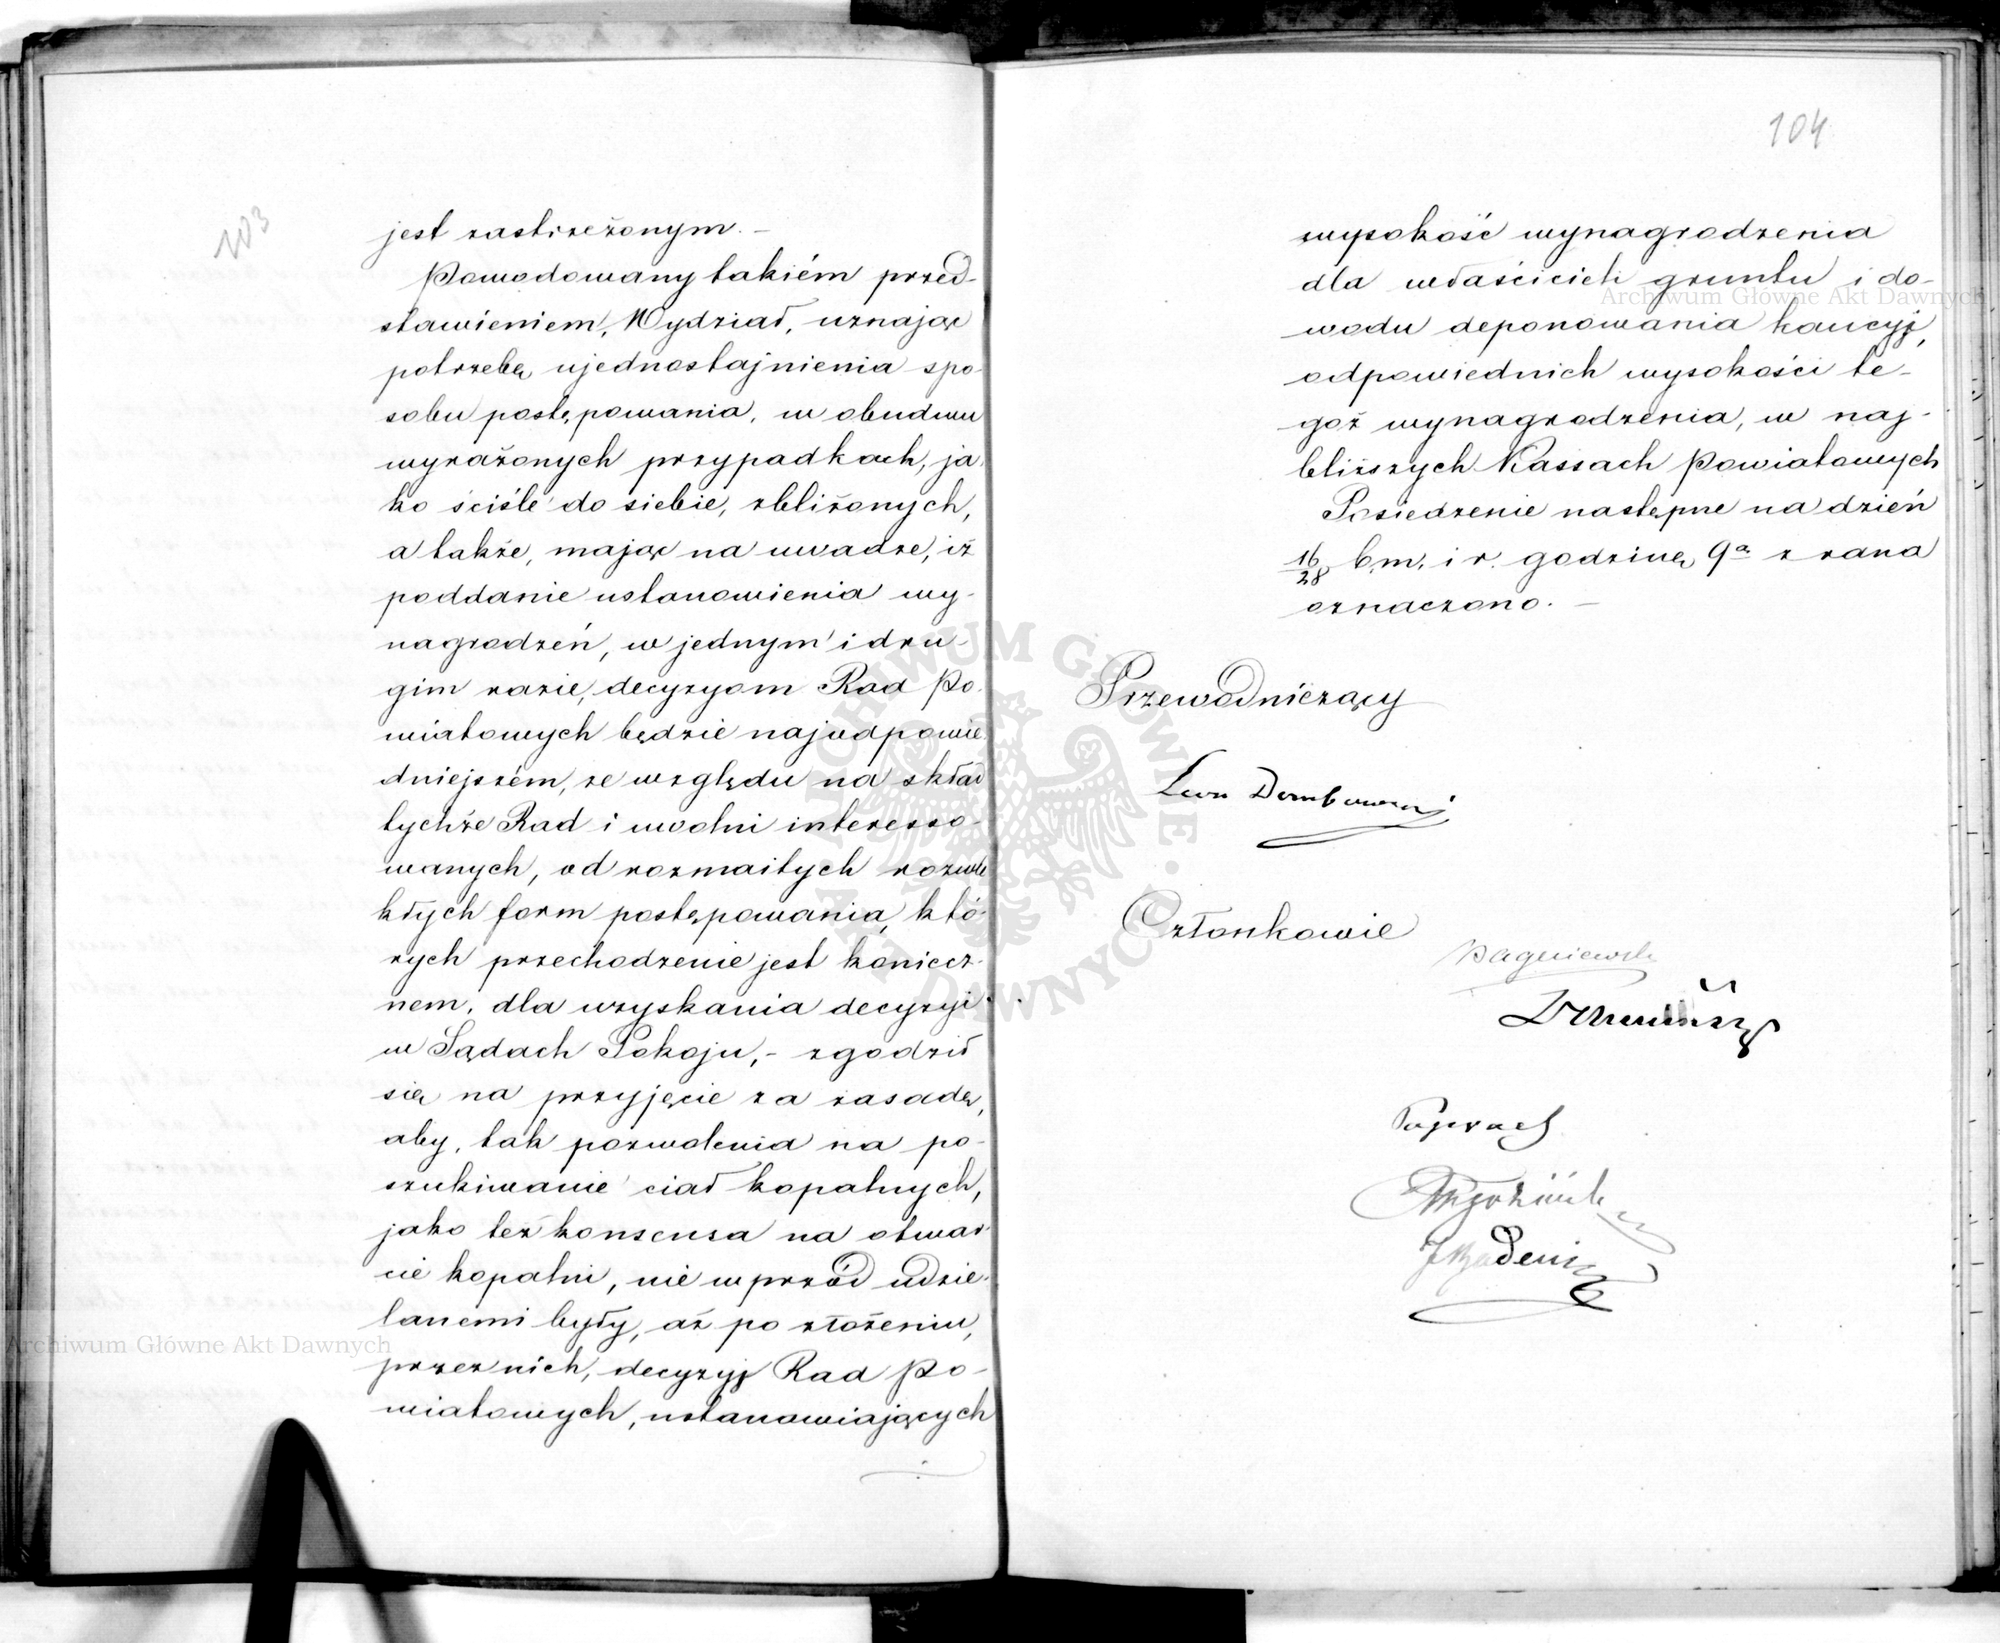 103
jest zastrzeżonym. –
Powodowany takiém przed-
stawieniem, Wydział, uznając
potrzebę ujednostajnienia spo-
sobu postępowania, w obudwu
wyrażonych przypadkach, ja-
ko ściśle do siebie, zbliżonych,
a także, mając na uwadze, iż
poddanie ustanowienia wy-
nagrodzeń, w jednym i dru-
gim razie, decyzyom Rad Po-
wiatowych będzie najodpowie-
dniejszém, ze względu na skład
tychże Rad i uwolni interesso-
wanych, od rozmaitych rozwle
kłych form postępowania, któ-
rych przechodzenie jest koniecz-
nem, dla uzyskania decyzyi
w Sądach Pokoju, – zgodził
się na przyjęcie za zasadę,
aby, tak pozwolenia na po-
szukiwanie ciał kopalnych,
jako też konsensa na otwar-
cie kopalni, nie wprzód udzie-
lanemi były, aż po złożeniu,
przez nich, decyzyj Rad Po-
wiatowych, ustanawiających
104
wysokość wynagrodzenia
dla właścicieli gruntu i do-
wodu deponowania kaucyj,
odpowiednich wysokości te-
goż wynagrodzenia, w naj-
bliższych Kassach Powiatowych
Posiedzenie następne na dzień
16/28 b.m. i r. godzinę 9ª z rana
oznaczono. –
Przewodniczący
Leon Dembowski
Członkowie
Bagniewski
JBadeni
Archiwum Główne Akt Dawnych
Archiwum Główne Akt Dawnych
ARCHIWUM GŁÓWNE AKT DAWNYCH